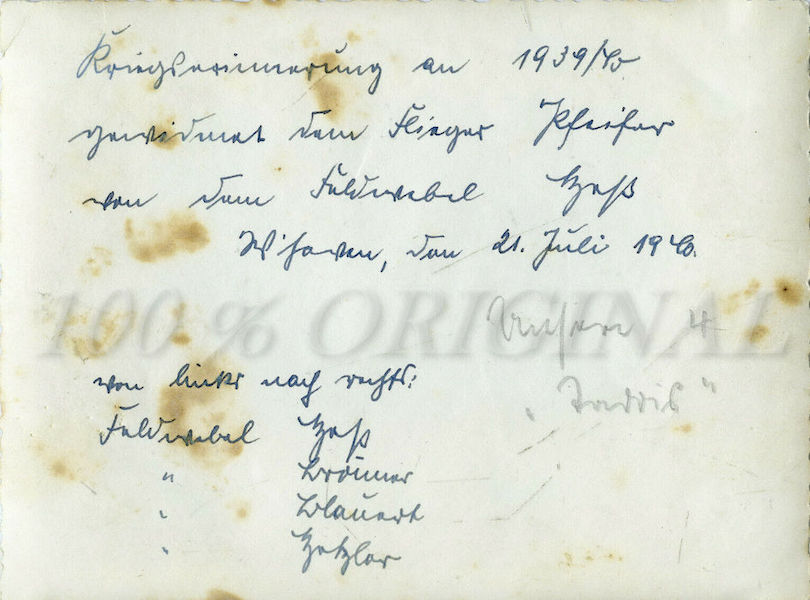 Kriegserinnerung an 1939/40
gewidmet dem Flieger Pfeifer
von dem Feldwebel Heß
W'haven, den 21. Juli 1940.
100 % ORIGINAL
Unsere 4
"
von links nach rechts:
Feldwebel Heß
" Brönner
" Blauert
" Hetzler